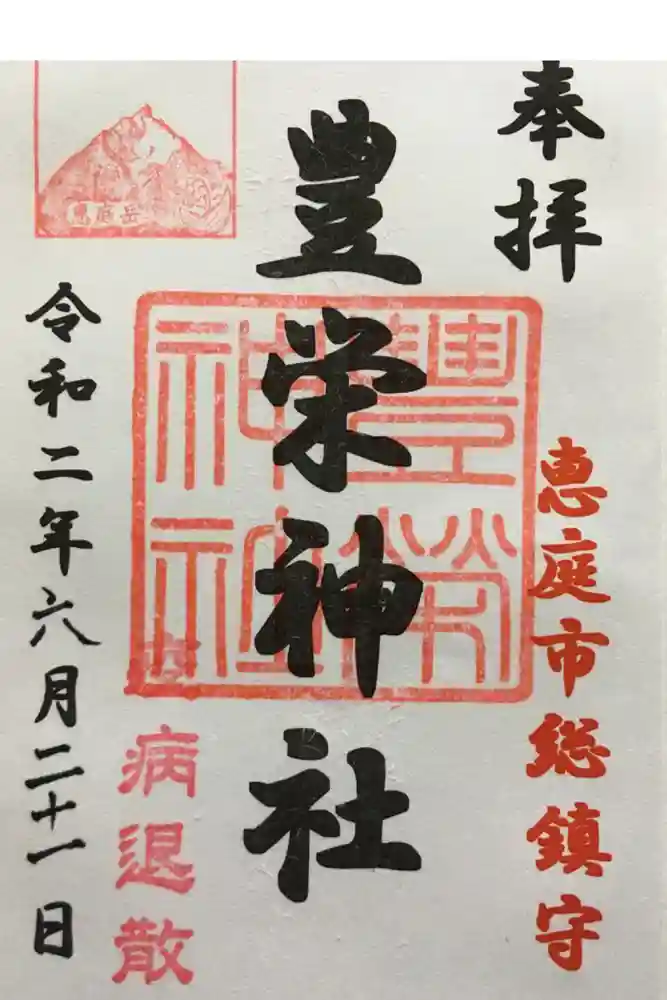 奉拝
恵庭市総鎮守
豊栄神社
豊榮神社
恵庭岳
疫病退散
令和二年六月二十一日